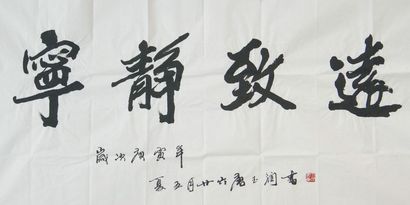 寧靜致遠
歲次庚寅年
夏五月廿六唐玉润書